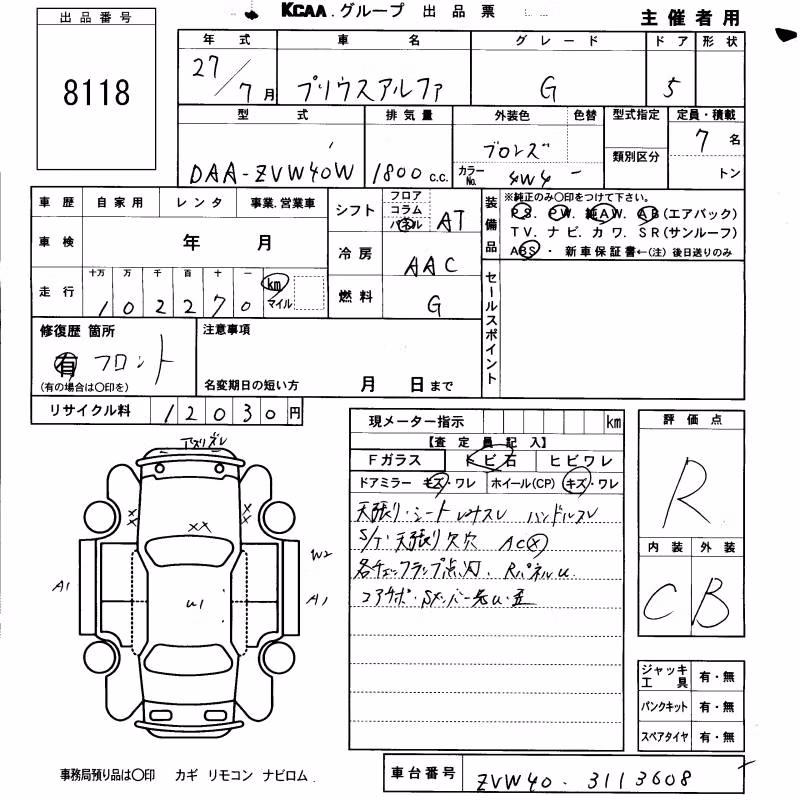 KCAA.グループ 出品票
主催者用
出品番号
8118
年式 車名 グレード ドア 形状
27/7月 プリウスアルファ G 5
型式 排気量 外装色 色替 型式指定 定員・積載
類別区分
DAA-ZVW40W 1800 c.c. ブロンズ 7名
カラーNo. 4W4 - トン
車歴 自家用 レンタ 事業.営業車
車検 年 月
走行 十万 万 千 百 十 一
102270 km マイル
シフト フロア コラム パネル AT
冷房 AAC
燃料 G
装備品
※純正のみ〇印をつけて下さい。
PS. PW. 純AW. AB(エアバック)
TV. ナビ. カワ. SR(サンルーフ)
ABS・新車保証書←(注)後日送りのみ
セールスポイント
修復歴 箇所
有 フロント
(有の場合は〇印を)
注意事項
名変期日の短い方 月 日まで
リサイクル料 12030円
現メーター指示 km
【査定員記入】
Fガラス トビ石 ヒビワレ
ドアミラー キズ・ワレ ホイール(CP) キズ・ワレ
天張り・シート ハンドルスレ
S/T・天張り欠穴 AC×
各チェックランプ点灯. RパネルU.
コアサポ・Sメンバー先U・歪
評価点
R
内装 外装
C B
ジャッキ工具 有・無
パンクキット 有・無
スペアタイヤ 有・無
XX XX
XX
A1 U1 W2
A1
事務局預り品は〇印 カギ リモコン ナビロム.
車台番号 ZVW40-3113608